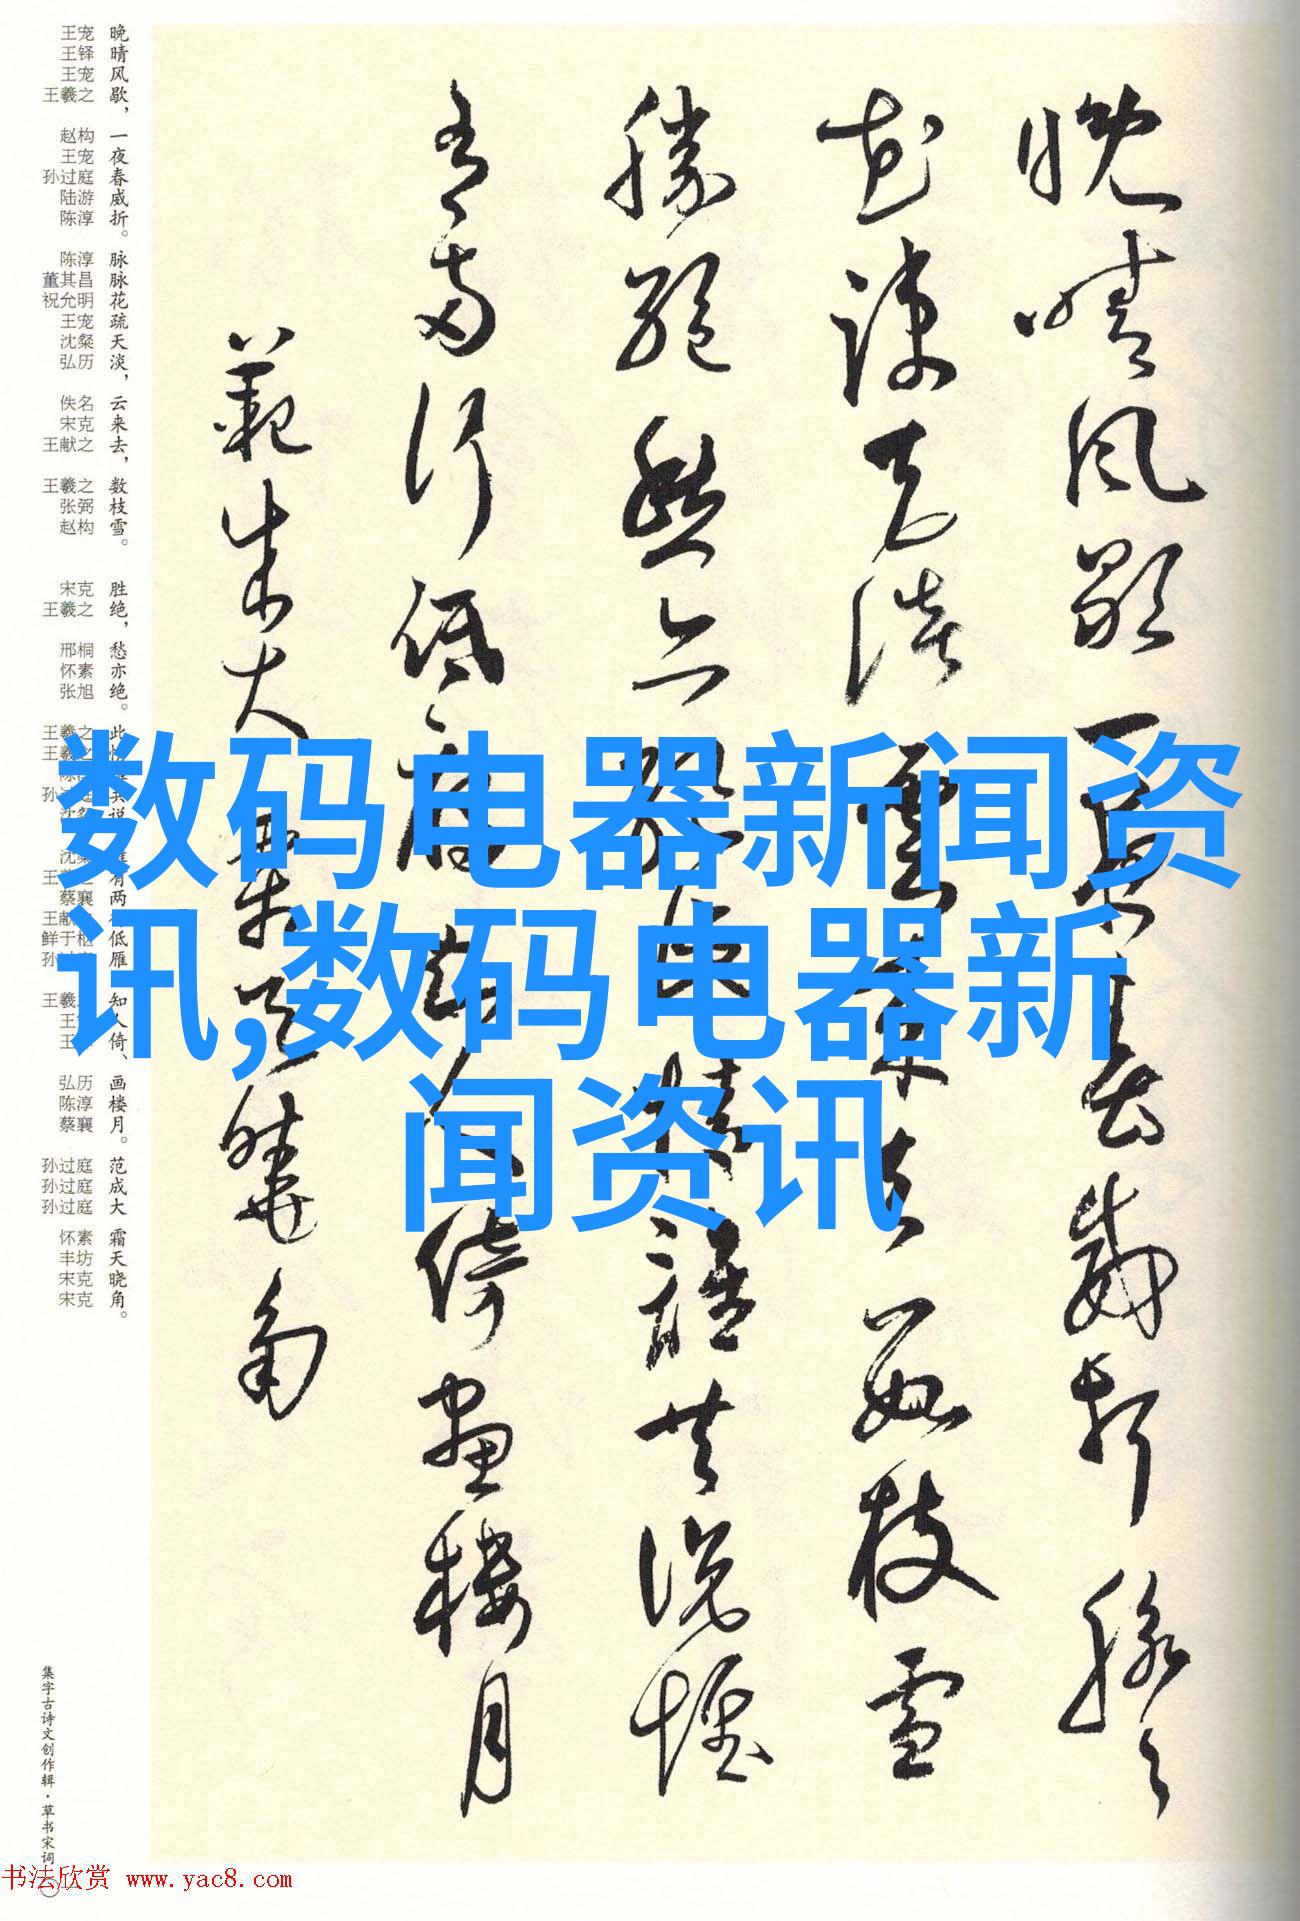 晚晴風歇一夜春威折脉々
花疎天淡雲来去数枝雪
勝絕愁亦絕此情誰共說惟
有兩行低雁知人倚畫樓月
範成大霜天曉角
晚晴风歇，一夜春威折。脉脉花疏天淡，云来去，数枝雪。胜绝，愁亦绝。此共说有两低雁知人倚、画楼月。范成大霜天晓角。
王宠 王铎 王宠 王羲之 赵构 王宠 孙过庭 陆游 陈淳 陈淳 董其昌 祝允明 王宠 沈粲 弘历 佚名 宋克 王献之 王羲之 张弼 赵构 宋克 王羲之 邢桐 怀素 张旭 王羲之 蔡襄 弘历 陈淳 蔡襄 孙过庭 孙过庭 孙过庭 怀素 丰坊 宋克 宋克
数码电器新闻资
讯,数码电器新
闻资讯
集字古诗文创作辑·草书宋词
书法欣赏 www.yac8.com